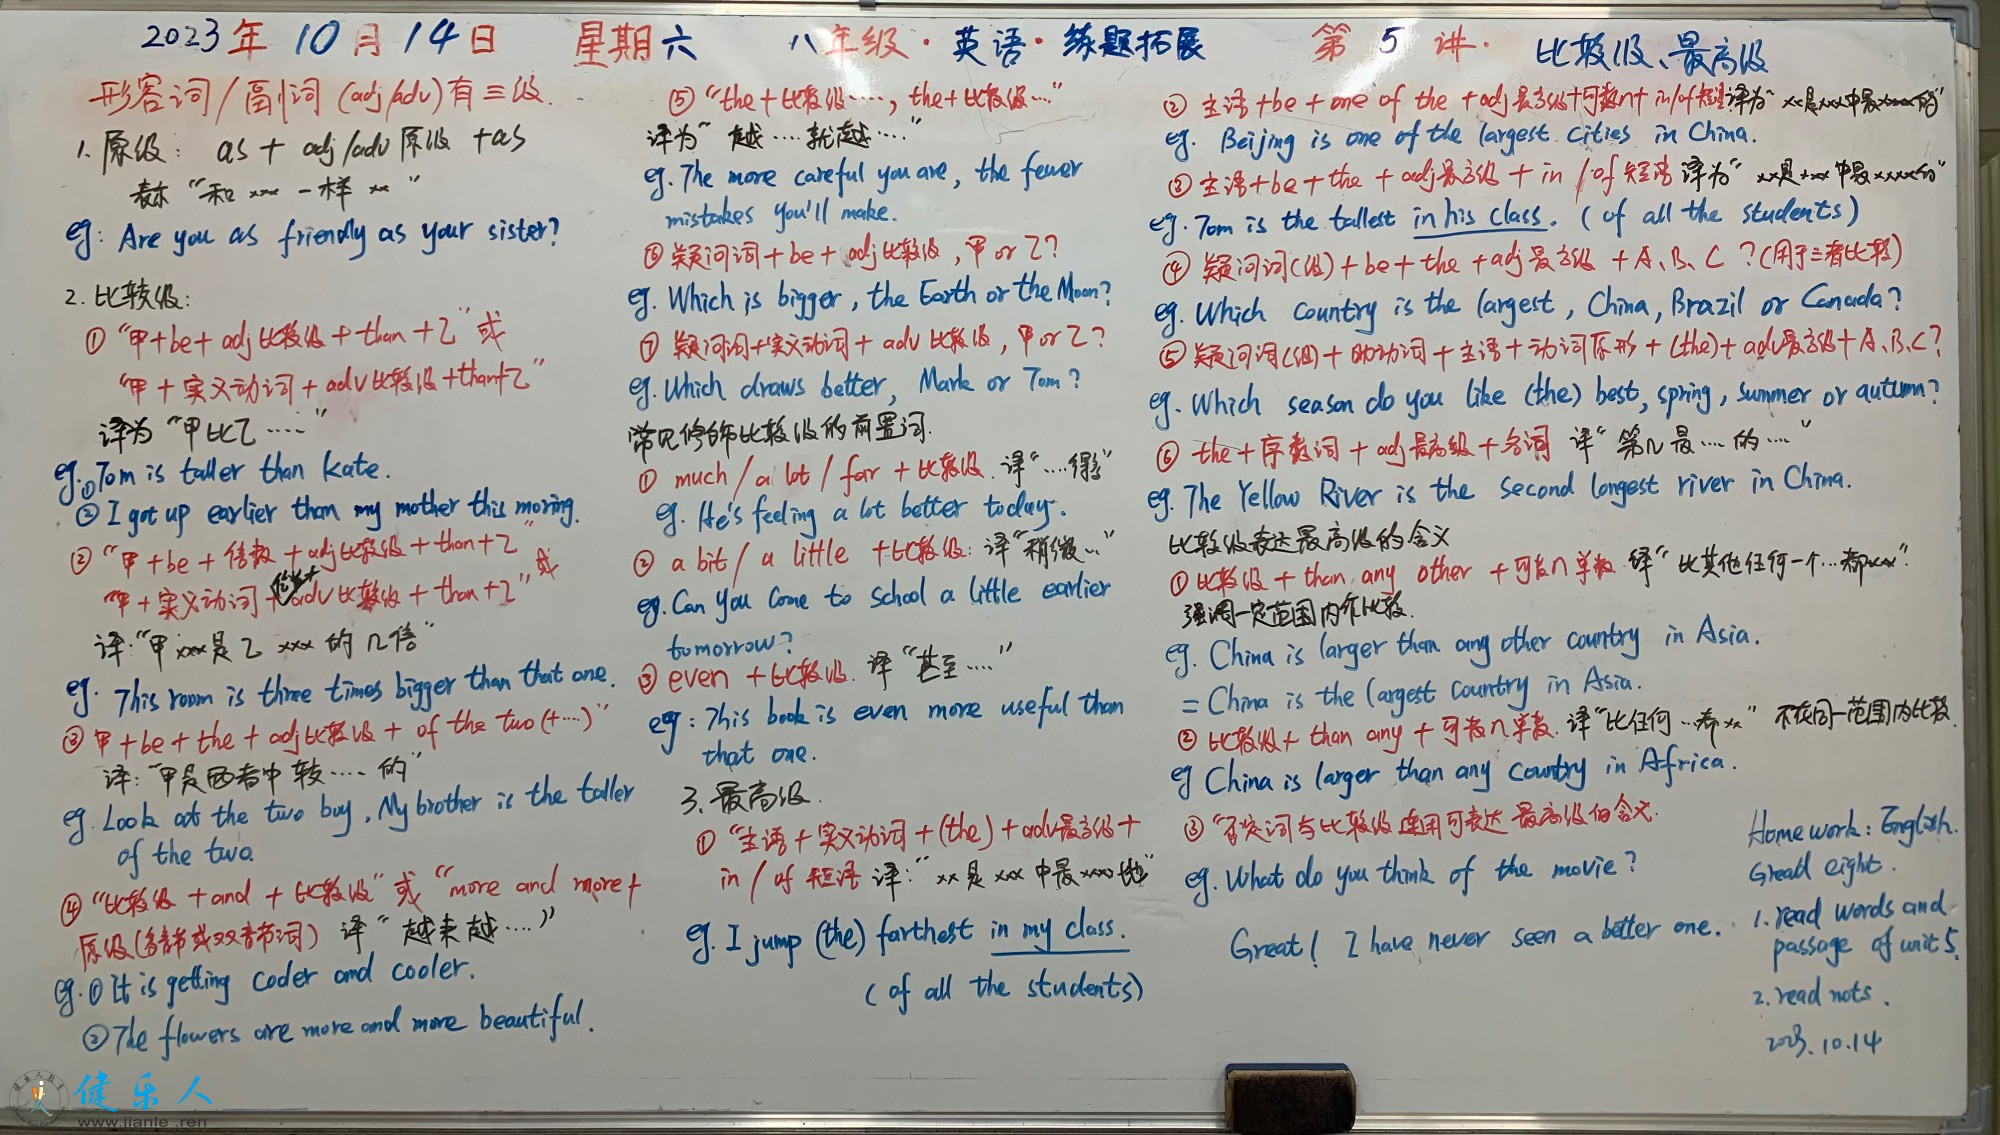 2023年10月14日 星期六 八年级·英语·练题拓展 第5讲· 比较级、最高级
形容词/副词(adj/adv)有三级.
1. 原级: as + adj/adv原级 +as
表示“和 xxx 一样 xx ”
eg: Are you as friendly as your sister?
2. 比较级:
① “甲+be+adj比较级+than+乙” 或
“甲+实义动词+adv比较级+than+乙”
译为“甲比乙……”
eg.①Tom is taller than Kate.
② I got up earlier than my mother this moring.
② “甲+be+倍数+adj比较级+than+乙” 或
“甲+实义动词+倍数+adv比较级+than+乙”
译:“甲xxx是乙 xxx 的几倍”
eg. This room is three times bigger than that one.
③ 甲+be+the+adj比较级+ of the two (+…)”
译:“甲是两者中较……的”
eg. Look at the two boy, My brother is the taller
of the two.
④ “比较级+and+比较级”或“more and more+
原级(多音节或双音节词) 译“越来越……)”
eg.① It is getting coder and cooler.
②The flowers are more and more beautiful.
⑤ “the+比较级……, the+比较级…”
译为“ 越……就越……”
eg. The more careful you are, the fewer
mistakes you'll make.
⑥ 疑问词+be+adj比较级,甲 or 乙?
eg. Which is bigger, the Earth or the Moon?
⑦ 疑问词+实义动词+adv比较级,甲or乙?
eg. Which draws better, Mark or Tom?
常见修饰比较级的前置词.
① much/a lot/far+比较级. 译“……得多”
eg. He's feeling a lot better today.
② a bit/a little +比较级: 译“稍微…”
eg. Can you come to school a little earlier
tomorrow?
③ even +比较级. 译“甚至……”
eg: This book is even more useful than
that one.
3. 最高级.
① “主语+实义动词+(the)+adv最高级+
in/of 短语 译:“xx是xxx中最xxx地”
eg. I jump (the) farthest in my class.
(of all the students)
② 主语+be+one of the+adj最高级+可数n+in/of短语译为“xx是xxx中最xxxx的”
eg. Beijing is one of the largest cities in China.
③ 主语+be+the+adj最高级+in/of短语 译为“xx是xxx中最xxxx的”
eg. Tom is the tallest in his class. (of all the students)
④ 疑问词(组)+be+the+adj最高级+A、B、C ?(用于三者比较)
eg. Which country is the largest, China, Brazil or Canada?
⑤ 疑问词(组)+助动词+主语+动词原形+(the)+adv最高级+A、B、C?
eg. Which season do you like (the) best, spring, summer or autumn?
⑥ the+序数词+adj最高级+名词 译“第几最…的…”
eg. The Yellow River is the second longest river in China.
比较级表达最高级的含义
① 比较级+than any other +可数n单数 译“比其他任何一个…都xx”.
强调一定范围内作比较.
eg. China is larger than any other country in Asia.
= China is the largest country in Asia.
② 比较级+than any+可数n单数. 译“比任何…都xx” 不在同一范围内比较.
eg China is larger than any country in Africa.
③ “否定词与比较级连用可表达最高级的含义.
eg. What do you think of the movie?
Great! I have never seen a better one.
Homework: English.
Gread eight.
1. read words and
passage of unit 5.
2. read nots.
2023.10.14
健乐人
www.jianle.ren